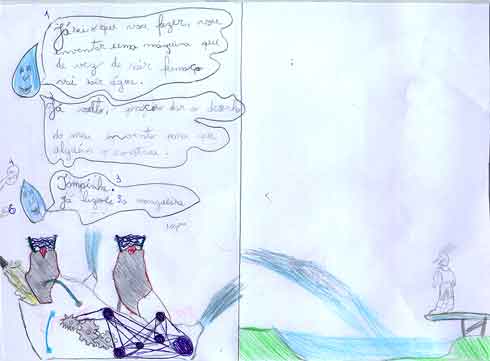 1
Já sei o que vou fazer, vou
inventar uma máquina que
de vez de sair fumaça
vai sair água.
Já volto,
do meu invento para que
alguém o construa.
3
Pompinha.
Já liguei a mangueira
6